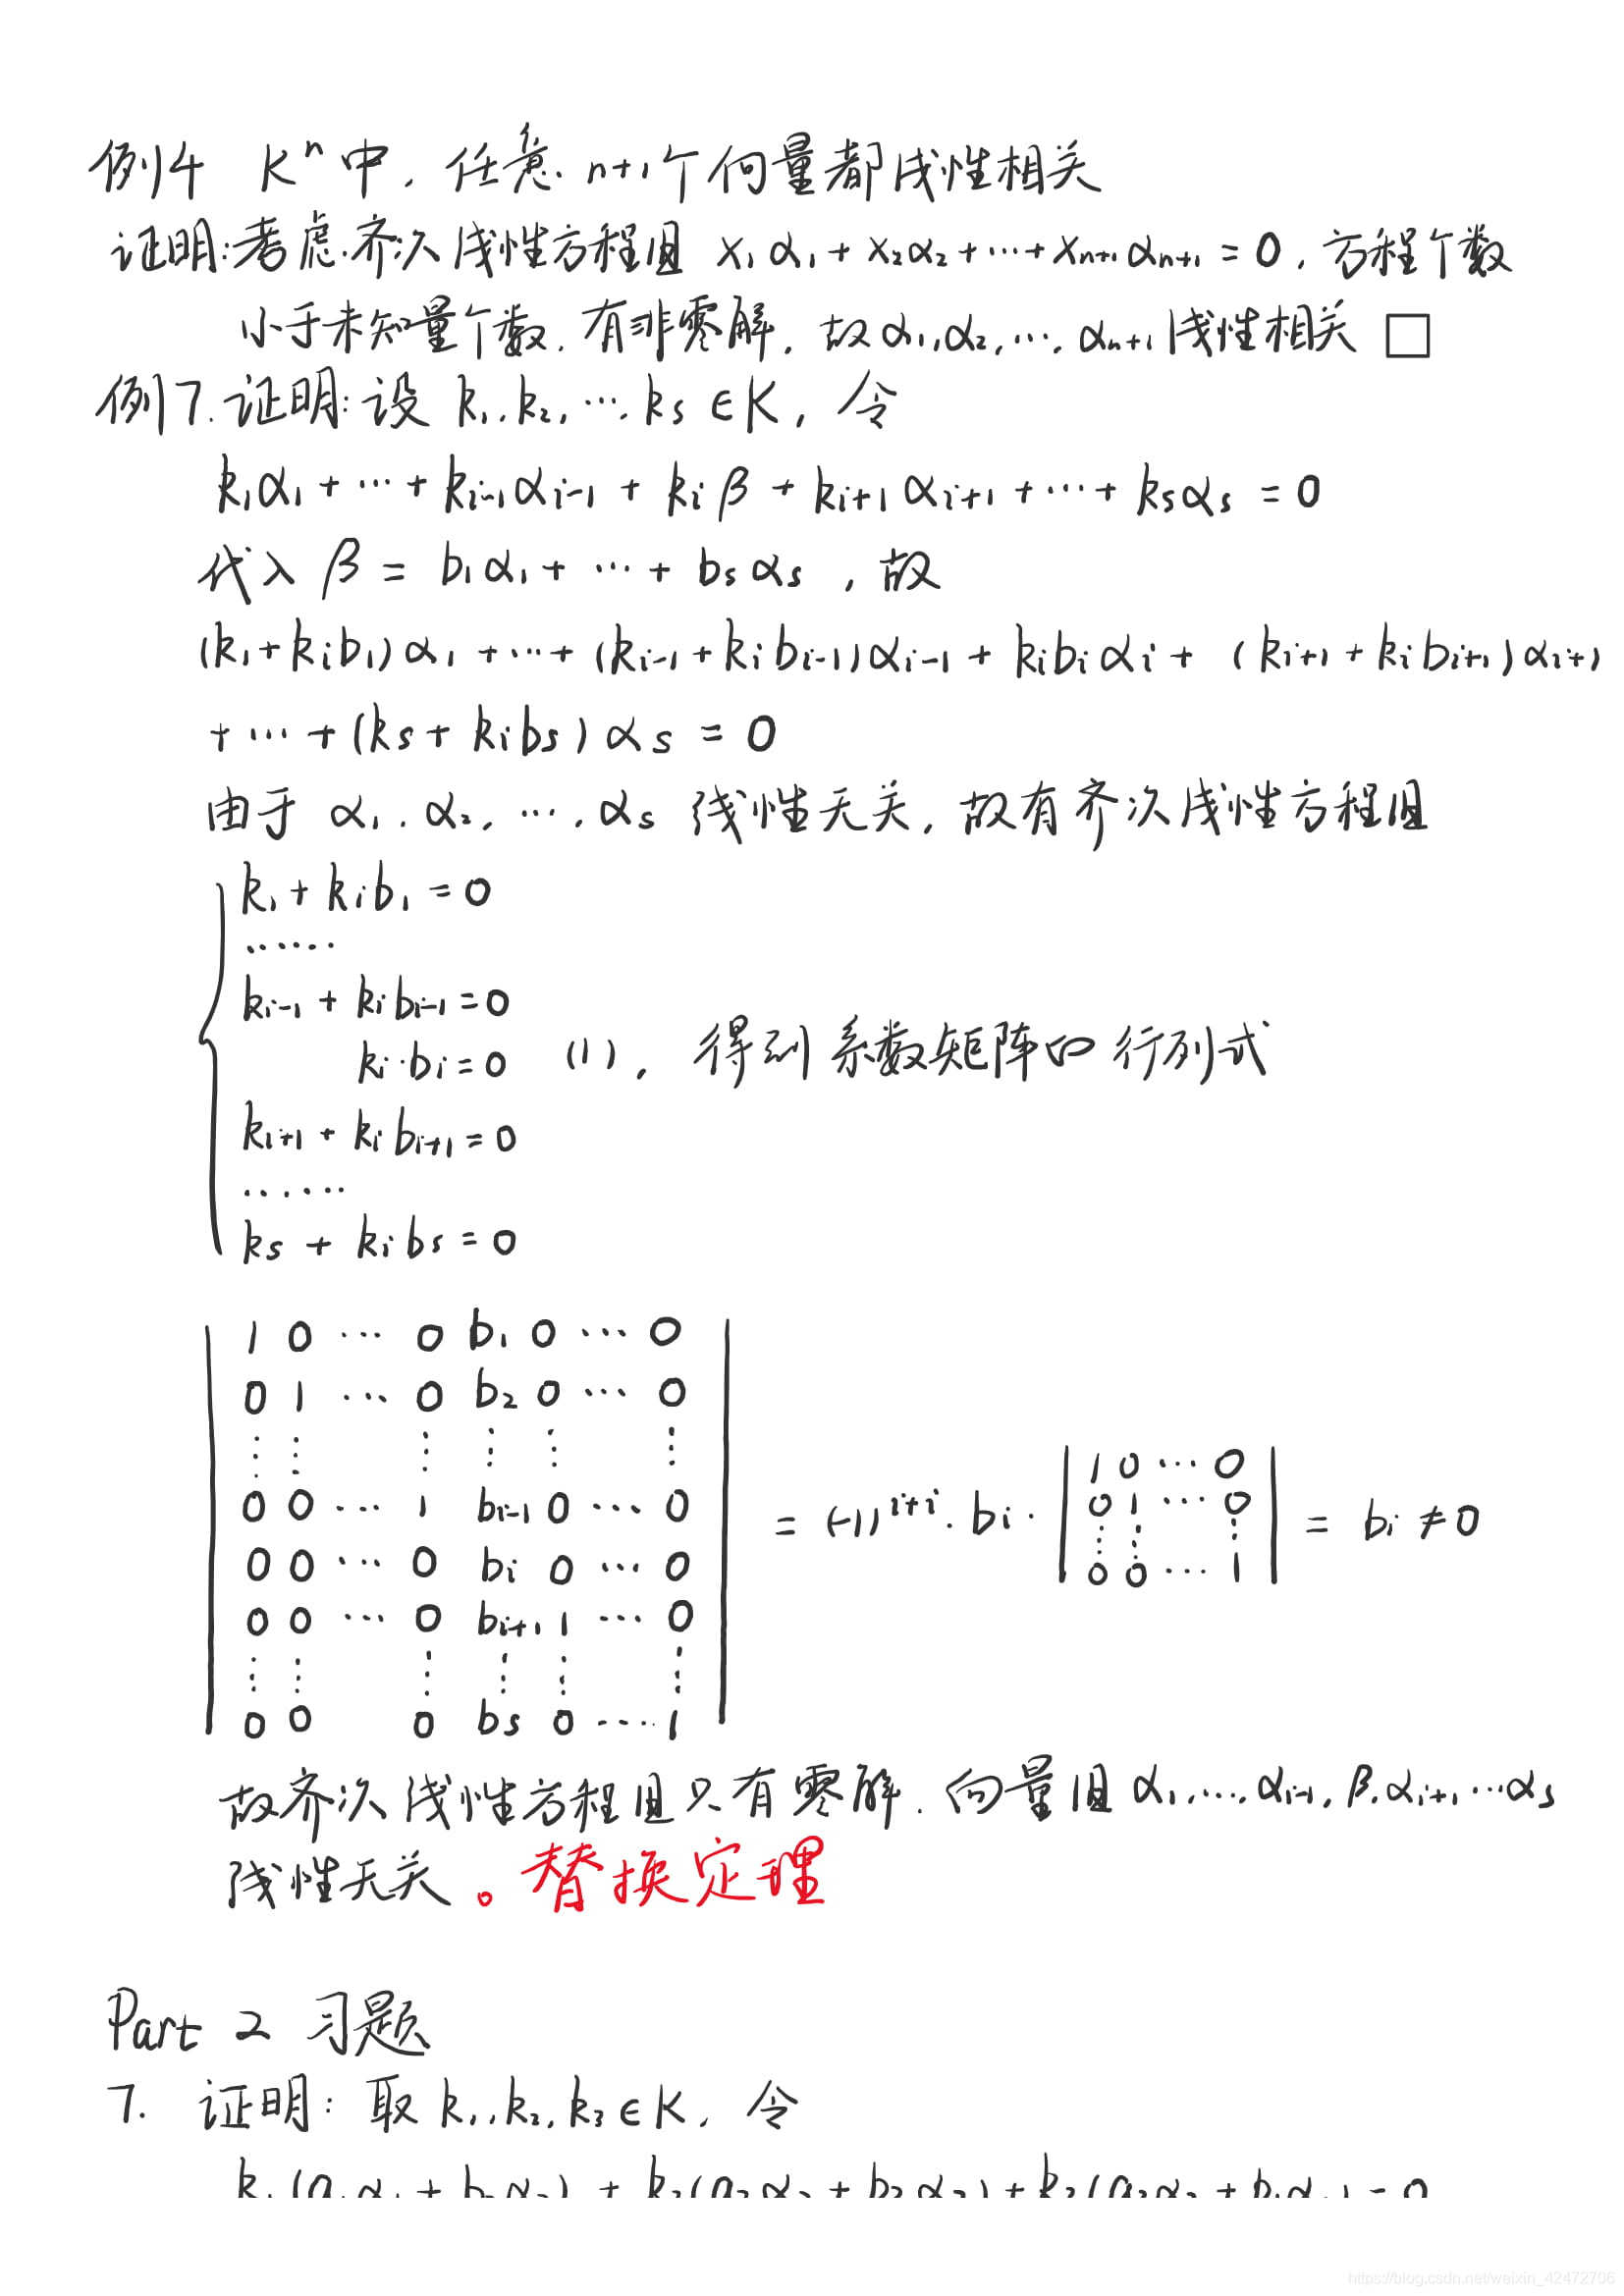 例4 Kⁿ中，任意n+1个向量都线性相关
证明:考虑齐次线性方程组 x₁α₁+x₂α₂+…+xₙ₊₁αₙ₊₁=0，方程个数
小于未知量个数，有非零解，故α₁,α₂,…,αₙ₊₁线性相关 □
例7.证明:设 k₁,k₂,…,kₛ∈K，令
k₁α₁+…+kᵢ₋₁αᵢ₋₁+kᵢβ+kᵢ₊₁αᵢ₊₁+…+kₛαₛ=0
代入 β=b₁α₁+…+bₛαₛ，故
(k₁+kᵢb₁)α₁+…+(kᵢ₋₁+kᵢbᵢ₋₁)αᵢ₋₁+kᵢbᵢαᵢ+(kᵢ₊₁+kᵢbᵢ₊₁)αᵢ₊₁
+…+(kₛ+kᵢbₛ)αₛ=0
由于 α₁,α₂,…,αₛ 线性无关，故有齐次线性方程组
k₁+kᵢb₁=0
……
kᵢ₋₁+kᵢbᵢ₋₁=0
kᵢ·bᵢ=0 (1)，得到系数矩阵的行列式
kᵢ₊₁+kᵢbᵢ₊₁=0
……
kₛ+kᵢbₛ=0
1 0 … 0 b₁ 0 … 0
0 1 … 0 b₂ 0 … 0
⋮ ⋮ ⋮ ⋮ ⋮ ⋮
0 0 … 1 bᵢ₋₁ 0 … 0
0 0 … 0 bᵢ 0 … 0
0 0 … 0 bᵢ₊₁ 1 … 0
⋮ ⋮ ⋮ ⋮ ⋮ ⋮
0 0 0 bₛ 0 … 1
= (-1)ⁱ⁺ⁱ·bᵢ·
1 0 … 0
0 1 … 0
⋮ ⋮ ⋮
0 0 … 1
= bᵢ≠0
故齐次线性方程组只有零解，向量组α₁,…,αᵢ₋₁,β,αᵢ₊₁…αₛ
线性无关。替换定理
Part 2 习题
7. 证明: 取k₁,k₂,k₃∈K，令
k₁(a₁α₁+b₂α₂)+k₂(a₂α₂+b₃α₃)+k₃(a₃α₃+b₁α₁)=0
https://blog.csdn.net/weixin_42472706